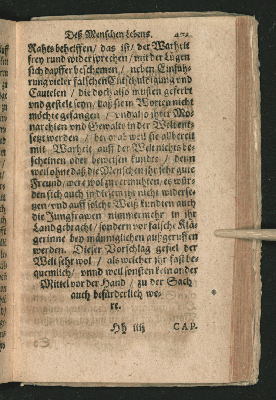 Deß Menschen Lebens. 471
Rahts behelffen / das ist / der Warheit
frey rund widersprechen / mit der Lügen
sich dapffer beschemen / neben Einfüh-
rung vieler falschen Entschuldigung und
Cautelen / die doch also müsten gefert
vnd gestelt seyn / daß sie in Worten nicht
möchte gefangen / vnd also ihrer Mo-
narchien vnd Gewalte in der Welt ent-
setzt werden / bevorab weil sie allbereit
mit Warheit auff der Welt nichts be-
scheinen oder beweisen kundte / denn
weil ohne daß die Menschen ihr sehr gute
Freund / wer wol zuvermuhten / es wür-
den sich auch in diesem ihr nicht widerse-
tzen / vnd auff solche Weiß kundten auch
die Jungfrawen nimmermehr in ihr
Land gebracht / sondern vor falsche Klä-
gerinne bey männiglichen außgeruffen
werden. Dieser Vorschlag gefiel der
Welt sehr wol / als welcher ihr fast be-
quemlich / vnnd weil sonsten kein ander
Mittel vor der Hand / zu der Sach
auch befürderlich we-
re.
Hh iiij CAP.